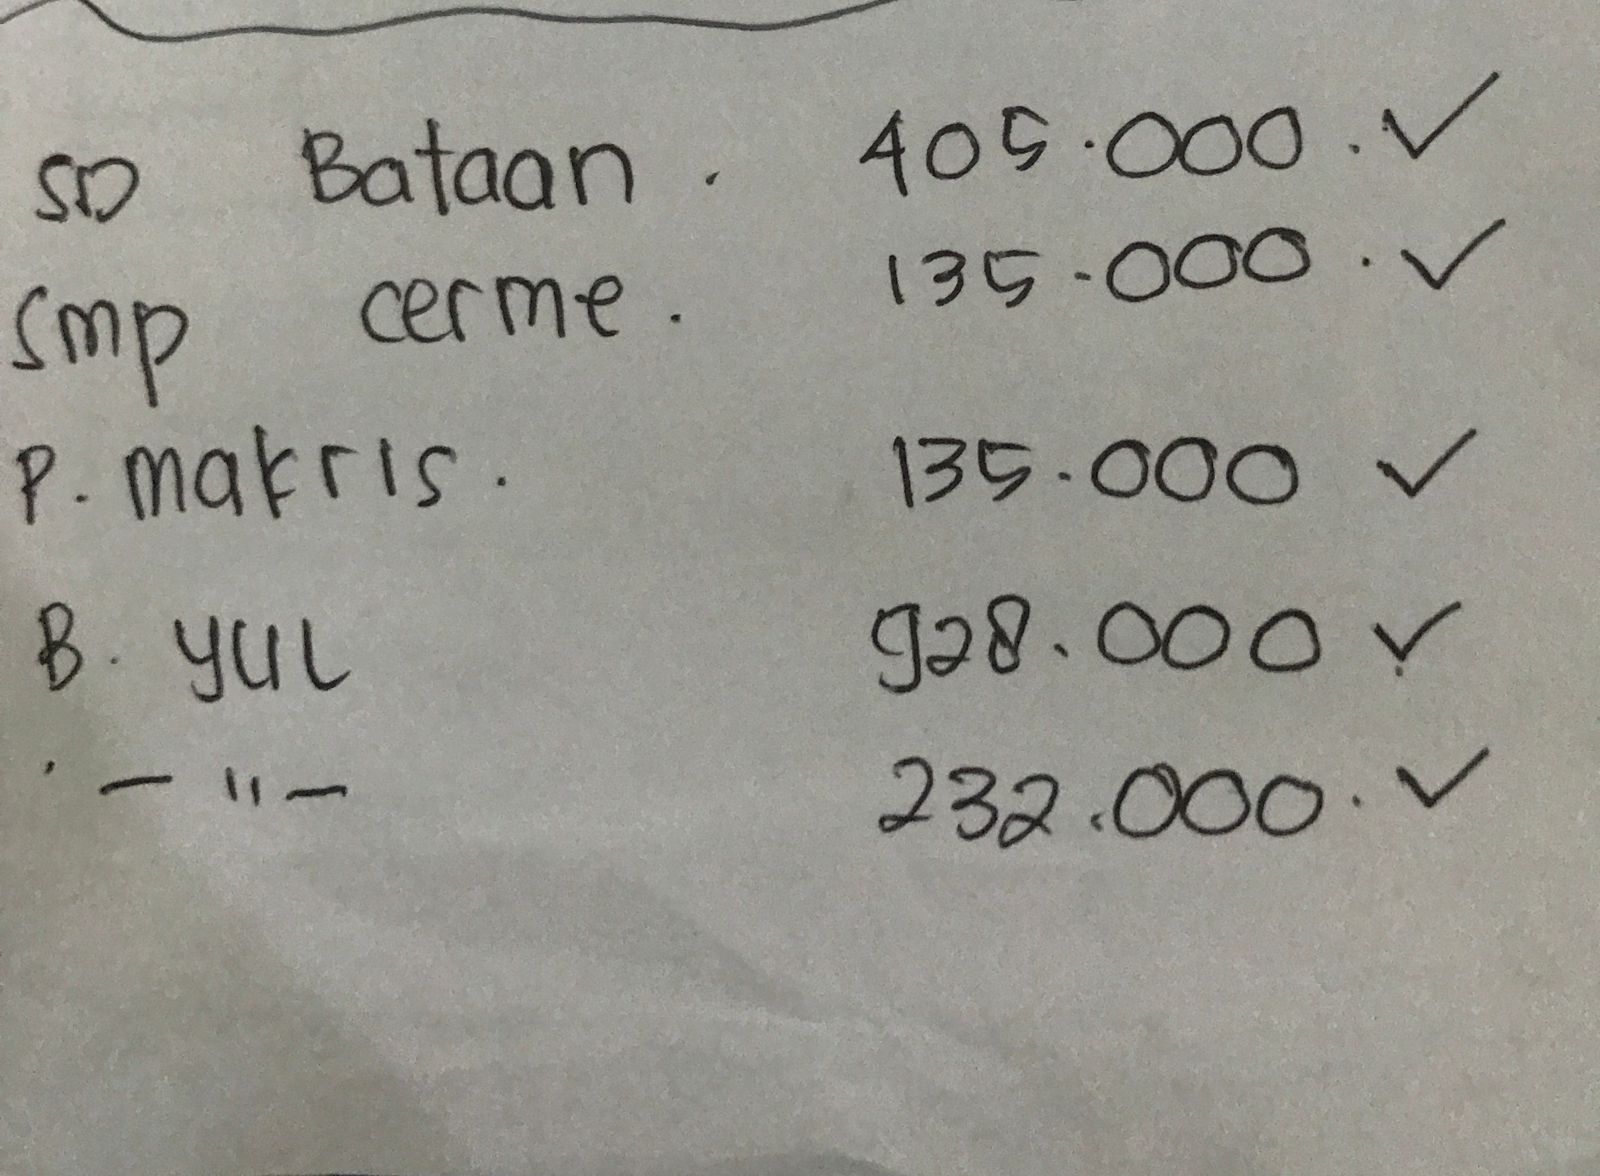 SD Bataan. 405.000. ✓
Smp cerme. 135.000. ✓
P. makris. 135.000 ✓
B. yul 928.000 ✓
— " — 232.000. ✓